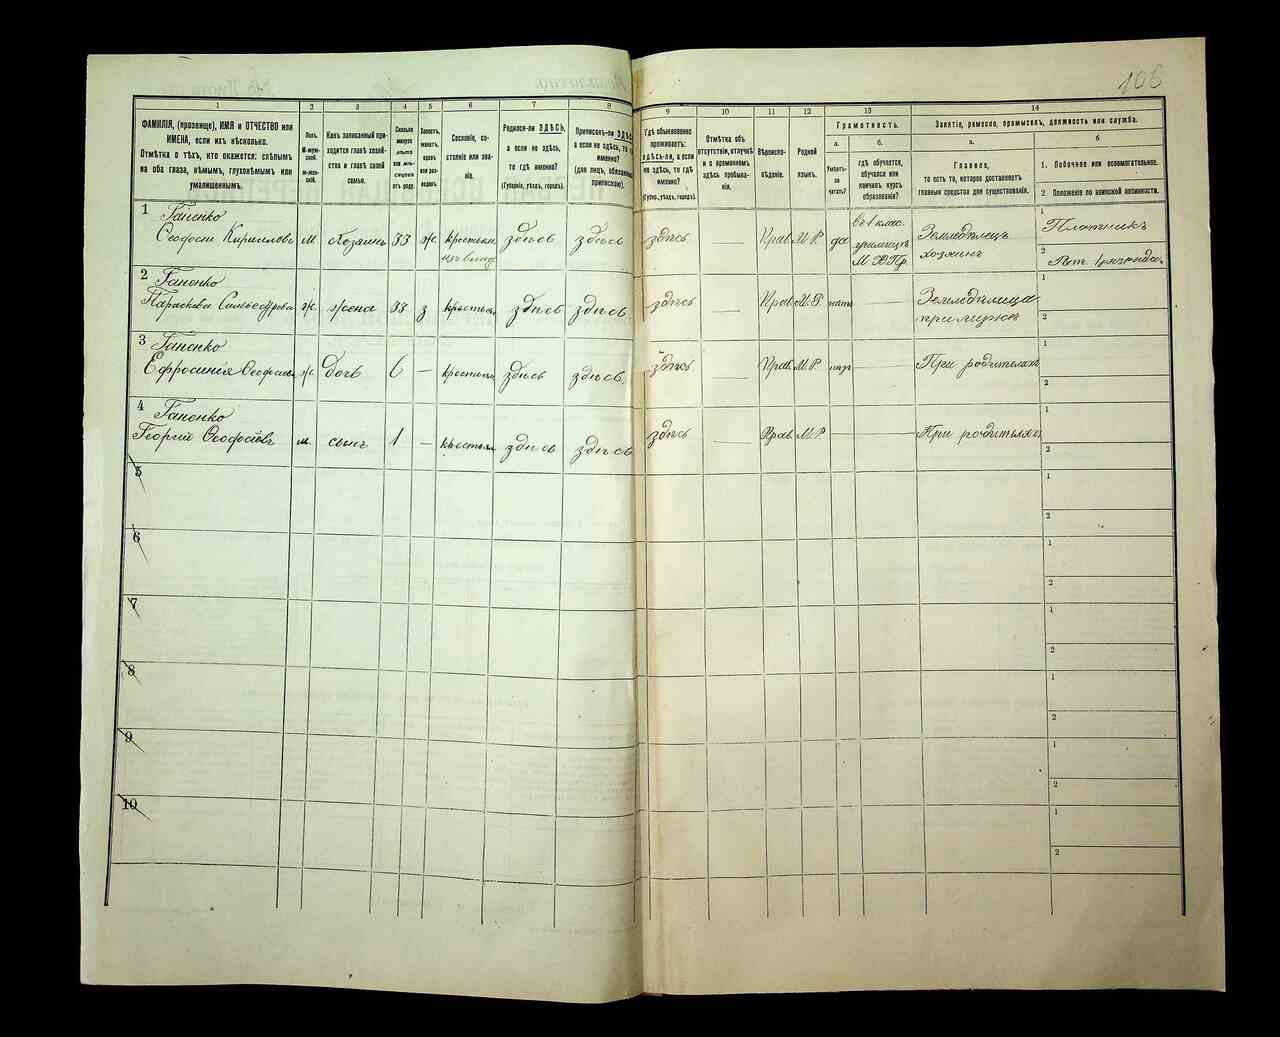 106
1 2 3 4 5 6 7 8 9 10 11 12 13 14
ФАМИЛІЯ, (прозвище), ИМЯ и ОТЧЕСТВО или ИМЕНА, если ихъ нѣсколько.
Отмѣтка о тѣхъ, кто окажется: слѣпымъ на оба глаза, нѣмымъ, глухонѣмымъ или умалишеннымъ.
Полъ.
М-мужской.
Ж-женскій.
Какъ записанный приходится главѣ хозяйства и главѣ своей семьи.
Сколько минуло лѣтъ или мѣсяцевъ отъ роду.
Холостъ, женатъ, вдовъ или разведенъ.
Сословіе, состояніе или званіе.
Родился-ли ЗДѢСЬ, а если не здѣсь, то гдѣ именно?
(Губернія, уѣздъ, городъ).
Приписанъ-ли ЗДѢСЬ а если не здѣсь, то гдѣ именно?
(для лицъ, обязанныхъ припискою).
Гдѣ обыкновенно проживаетъ: здѣсь-ли, а если не здѣсь, то гдѣ именно?
(Губер., уѣздъ, городъ).
Отмѣтка объ отсутствіи, отлучкѣ и о временномъ здѣсь пребываніи.
Вѣроисповѣданіе.
Родной языкъ.
Грамотность.
а. б.
Умѣетъ-ли читать?
гдѣ обучается, обучался или кончилъ курсъ образованія?
Занятіе, ремесло, промыселъ, должность или служба.
а. б.
Главное,
то есть то, которое доставляетъ главныя средства для существованія.
1. Побочное или вспомогательное.
2. Положеніе по воинской повинности.
1 Ганенко
Феодосій Кирилловъ м хозяинъ 33 ж. крестьян. здѣсь здѣсь здѣсь — Прав М.Р. да
въ 1 клас. училищѣ М
Земледѣлецъ хозяинъ
1 Плотникъ
2
2 Ганенко
Параскева ж. жена 33 з крестьян здѣсь здѣсь здѣсь — Прав М.Р. нѣтъ —
Земледѣлица при мужѣ
1
2
3 Ганенко
Ефросинія Феодосіева ж. дочь 6 — крестьян здѣсь здѣсь здѣсь — Прав М.Р. нѣтъ — При родителяхъ
1
2
4 Ганенко
Георгій Феодосіевъ м. сынъ 1 — крестьян здѣсь здѣсь здѣсь — Прав М.Р. — При родителяхъ
1
2
5
1
2
6
1
2
7
1
2
8
1
2
9
1
2
10
1
2